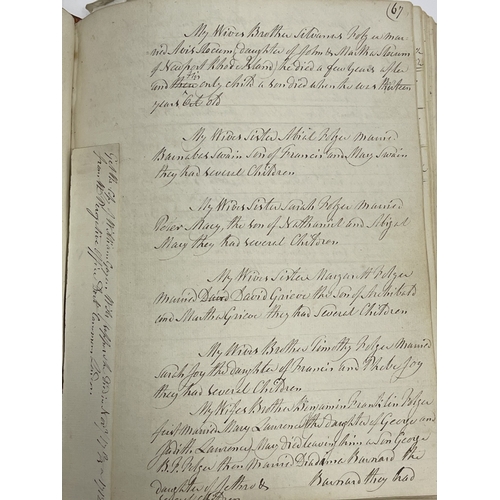 67
My Wives Brother Silvanus Folger mar
ried Avis Slocum, daughter of John & Martha Slocum
of Newport Rhode Island, he died a few years after
and their only child a son died when he was thirteen
years old
My Wives Sister Abial Folger Married
Barnabas Swain Son of Francis and Mary Swain
they had several Children
My Wives Sister Sarah Folger Married
Peter Macy, the son of Nathaniel and Abigal
Macy they had several Children
My Wives Sister Margaret Folger
Married David David Grieve the Son of Archibald
and Martha Grieve they had Several Children
My Wives Brother Timothy Folger Married
Sarah Joy the daughter of Francis and Phebe Joy
they had several Children
My Wifes Brother Benjamin Franklin Folger
first Married Mary Lawrence the daughter of George and
Judith Lawrence, Mary died leaving him a Son George
B. F. Folger then Married Diadama Barnard the
daughter of Jethro &
Barnard they had
several Children
Get the Copy of William
from the Prerogative office, Doctors Commons London